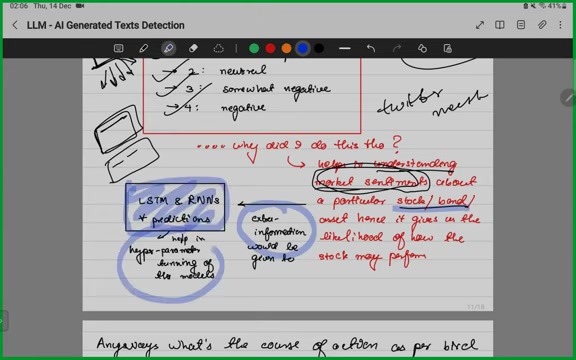 02:06 Thu, 14 Dec
41%
LLM - AI Generated Texts Detection
2: neutral
3: somewhat negative
4: negative
twitter
.... why did I do this tho ?
helps in understanding
market sentiments about
a particular stock/bond/
asset hence it gives us the
likelihood of how the
stock may perform
LSTM & RNNs
+ predictions
help in
hyper-parameter
tunning of
the models
extra-
information
would be
given to
11/19
Anyways what's the course of action as per bird